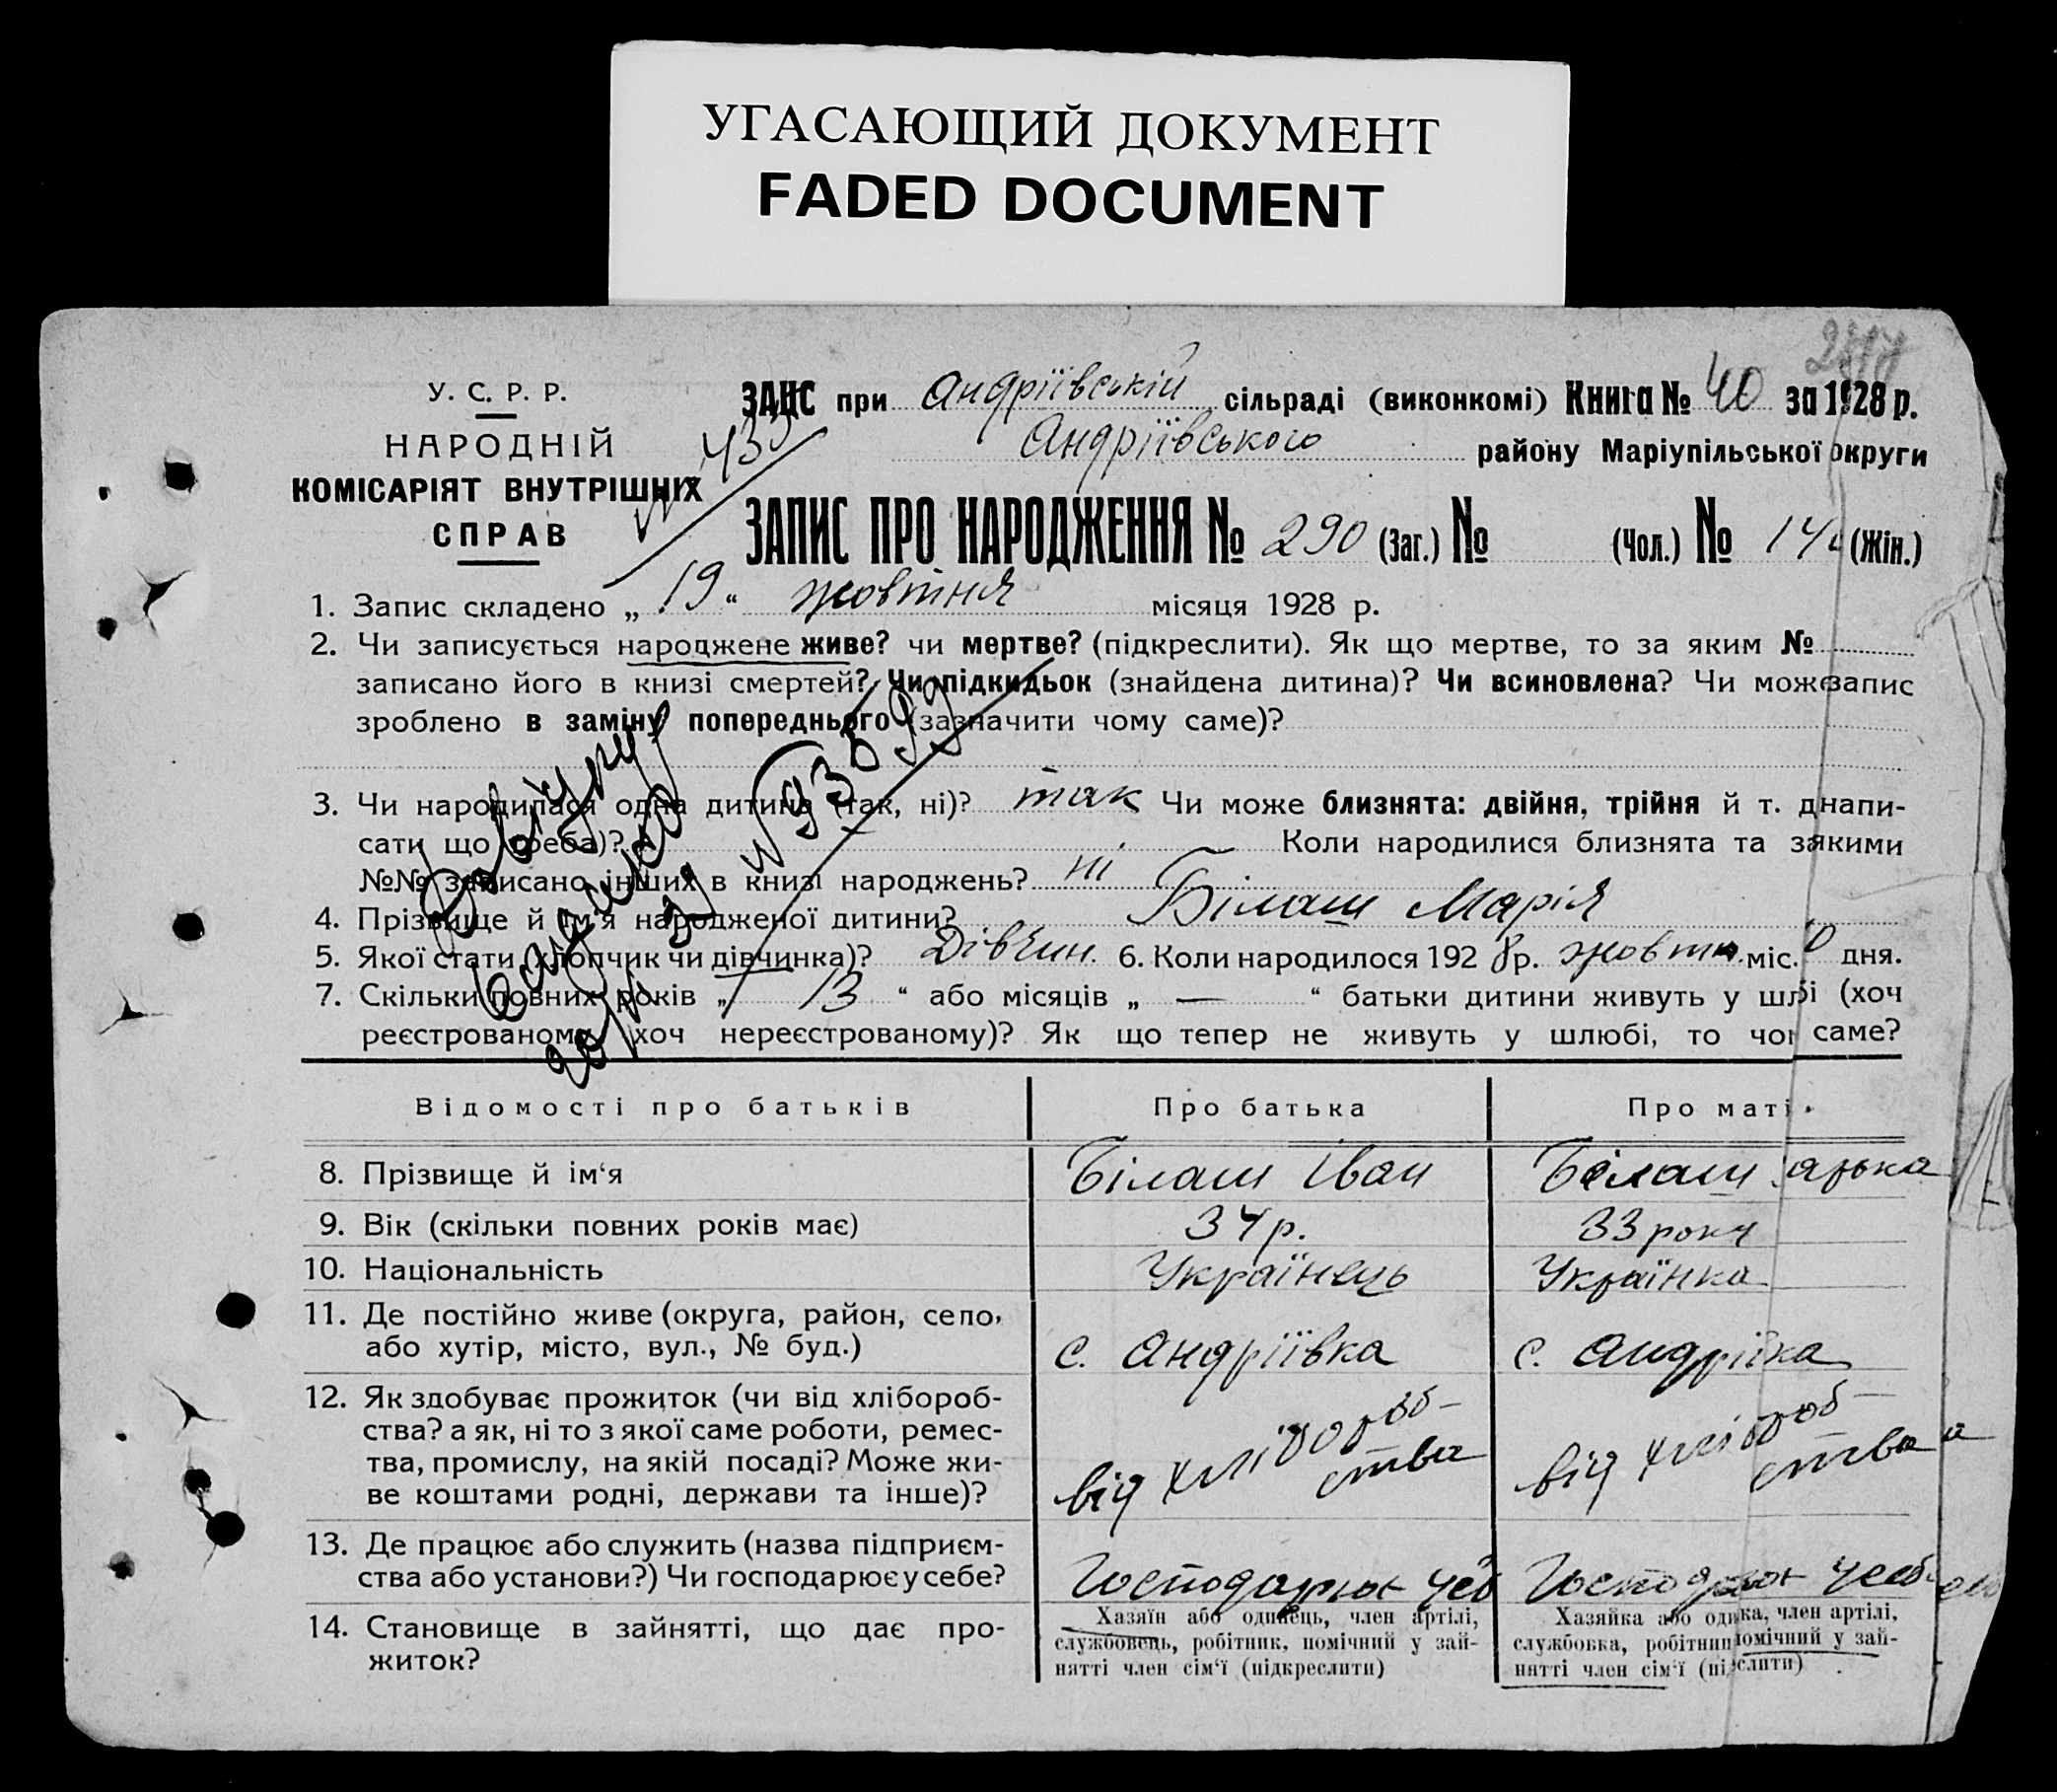 УГАСАЮЩИЙ ДОКУМЕНТ
FADED DOCUMENT
У. С. Р. Р.
НАРОДНІЙ
КОМІСАРІЯТ ВНУТРІШНІХ
СПРАВ
ЗАЦС при Андріївській сільраді (виконкомі) Книга № 40 за 1928 р.
Андріївського району Маріупільської округи
ЗАПИС ПРО НАРОДЖЕННЯ № 290 (Заг.) № (Чол.) № (Жін.)
1. Запис складено „ 19 “ жовтня місяця 1928 р.
2. Чи записується народжене живе? чи мертве? (підкреслити). Як що мертве, то за яким №
записано його в книзі смертей? Чи підкидьок (знайдена дитина)? Чи всиновлена? Чи може запис
зроблено в заміну попереднього (зазначити чому саме)?
3. Чи народилася одна дитина (так, ні)? так Чи може близнята: двійня, трійня й т. д напи-
сати що треба)? Коли народилися близнята та з якими
№№ записано інших в книзі народжень? ні
4. Прізвище й ім'я народженої дитини? Білаш Марія
5. Якої стати (хлопчик чи дівчинка)? Дівчин. 6. Коли народилося 192 8 р. жовтн. міс. дня.
7. Скільки повних років „ 13 “ або місяців „ — “ батьки дитини живуть у шл і (хоч
реєстрованому, хоч нереєстрованому)? Як що тепер не живуть у шлюбі, то чо саме?
Відомості про батьків
Про батька
Про маті
8. Прізвище й ім'я
Білаш Іван
Білаш
9. Вік (скільки повних років має)
34 р.
33 роки
10. Національність
Українець
Українка
11. Де постійно живе (округа, район, село,
або хутір, місто, вул., № буд.)
с. Андріївка
с. Андріївка
12. Як здобуває прожиток (чи від хлібороб-
ства? а як, ні то з якої саме роботи, ремес-
тва, промислу, на якій посаді? Може жи-
ве коштами родні, держави та інше)?
від хлібороб-
ства
від хлібороб-
ства
13. Де працює або служить (назва підприєм-
ства або установи?) Чи господарює у себе?
Господарює
Господарює
14. Становище в зайнятті, що дає про-
житок?
Хазяїн або одинець, член артілі,
службовець, робітник, помічний у зай-
нятті член сім'ї (підкреслити)
Хазяйка або одн ка, член артілі,
службовка, робітни помічний у зай-
нятті член сім'ї (пі слити)